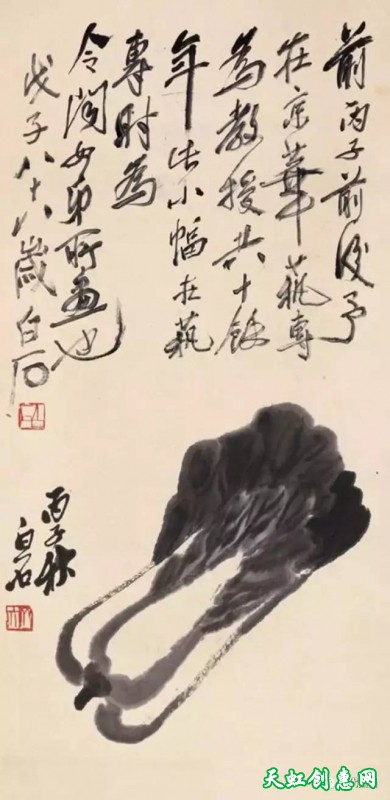 前丙子前後予
在京華藝專
為教授共十餘
年此小幅在藝
專時為
令閫女弟所畫也
戊子八十八歲白石
丙子秋
白石
天虹创惠网